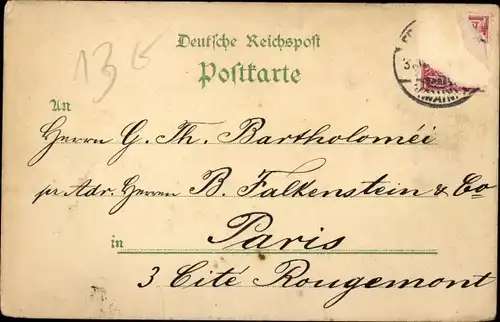 13 6
Deutsche Reichspost
Postkarte
An
Herrn G. Th. Bartholoméi
pr Adr. Herren B. Falkenstein & Co
in Paris
3 Cité Rougemont